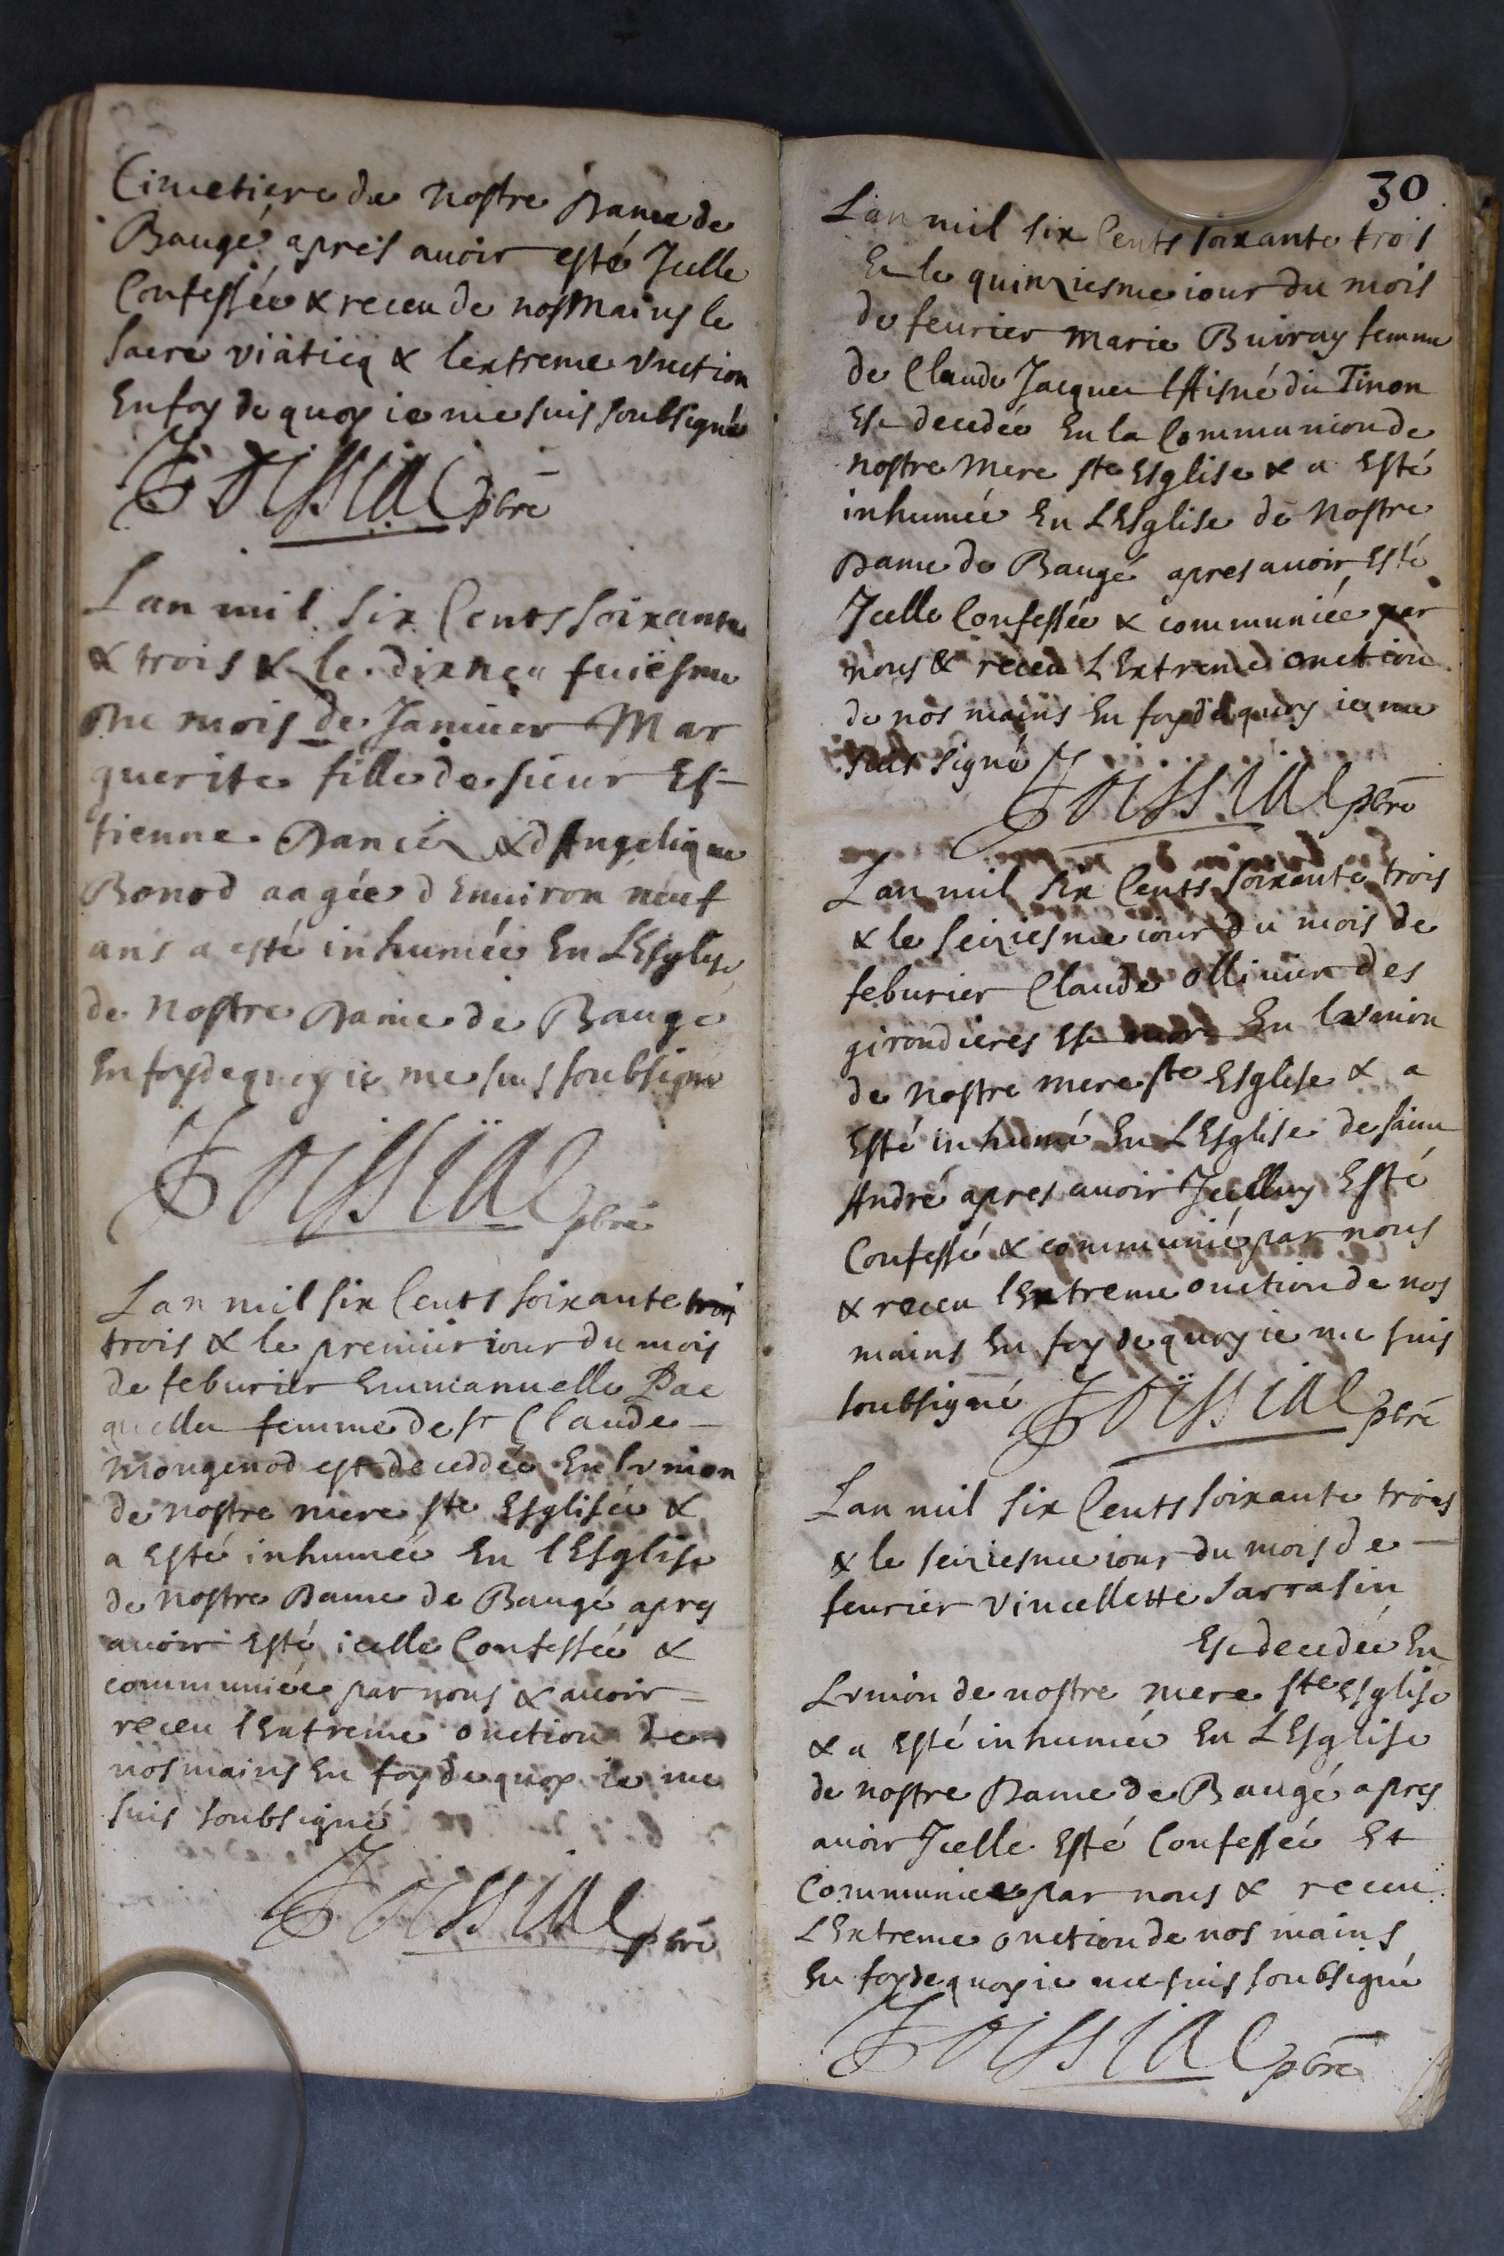 Cimetiere de Nostre Dame de
Baugé apres auoir esté Jcelle
Confessée & receu de nos Mains le
Sacré viaticq & lextreme vnction
En foy de quoy ie me suis soubsigné
Joissial pbre
Lan mil six Cents soixante
& trois & le
mois de Januier Mar
guerite fille de sieur Es-
tienne Dancé & d Angelique
Bonod aagée d Enuiron neuf
ans a esté inhumée En LEsglyse
de Nostre Dame de Baugé
En foy de quoy ie me suis soubsigné
Joissial pbre
Lan mil six Cents soixante trois
trois & le premier iour du mois
de feburier Emmanuelle Pac
quellu femme de sr Claude
Mongenod est deceddée En lvnion
de nostre mere ste Esglisée &
a Esté inhumée En lEsglise
de Nostre Dame de Baugé apres
auoir Esté icelle Confessée &
communiée par nous & auoir
receu lExtreme onction de
nos mains En foy de quoy ie me
suis soubsigné
Joissial pbre
30
Lan mil six Cents soixante trois
Et le quinziesme iour du mois
de feurier Marie Buiray femme
de Claude Jacquet lAisné du Tinon
Est decedée En la Communion de
nostre Mere ste Esglise & a Esté
inhumée En LEsglise de Nostre
Dame de Baugé apres auoir Esté
Jcelle Confessée & communiée par
nous & receu LExtreme onction
de nos mains En foy de quoy ie me
suis signé
Joissial pbre
Lan mil six Cents soixante trois
& le seiziesme iour du mois de
feburier Claude Olliuier des
girondieres Est mort En lvnion
de Nostre mere ste Esglise & a
Esté inhumé En LEsglise de Saint
André apres auoir Jcelluy Esté
Confessé & communié par nous
& receu lExtreme onction de nos
mains En foy de quoy ie me suis
soubsigné Joissial pbre
Lan mil six Cents soixante trois
& le seiziesme iour du mois de
feurier Vincellette Sarrasin
Est decedée En
Lvnion de nostre mere ste Esglise
& a Esté inhumée En LEsglise
de nostre Dame de Baugé apres
auoir Jcelle Esté Confessée Et
Communiée par nous & receu
LExtreme onction de nos mains
En foy de quoy ie me suis soubsigné
Joissial pbre